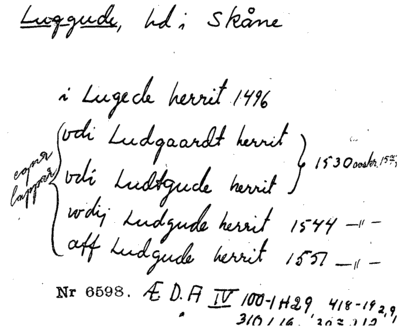 Luggude, hd i Skåne
i Lugede herrit 1496
vdi Ludgaardt herrit
vdi Ludtgude herrit
1530
wdij Ludgude herrit 1544 —〃—
aff Ludgude herrit 1551 —〃—
Nr 6598. Æ D. A IV 100-1 H29, 418-19